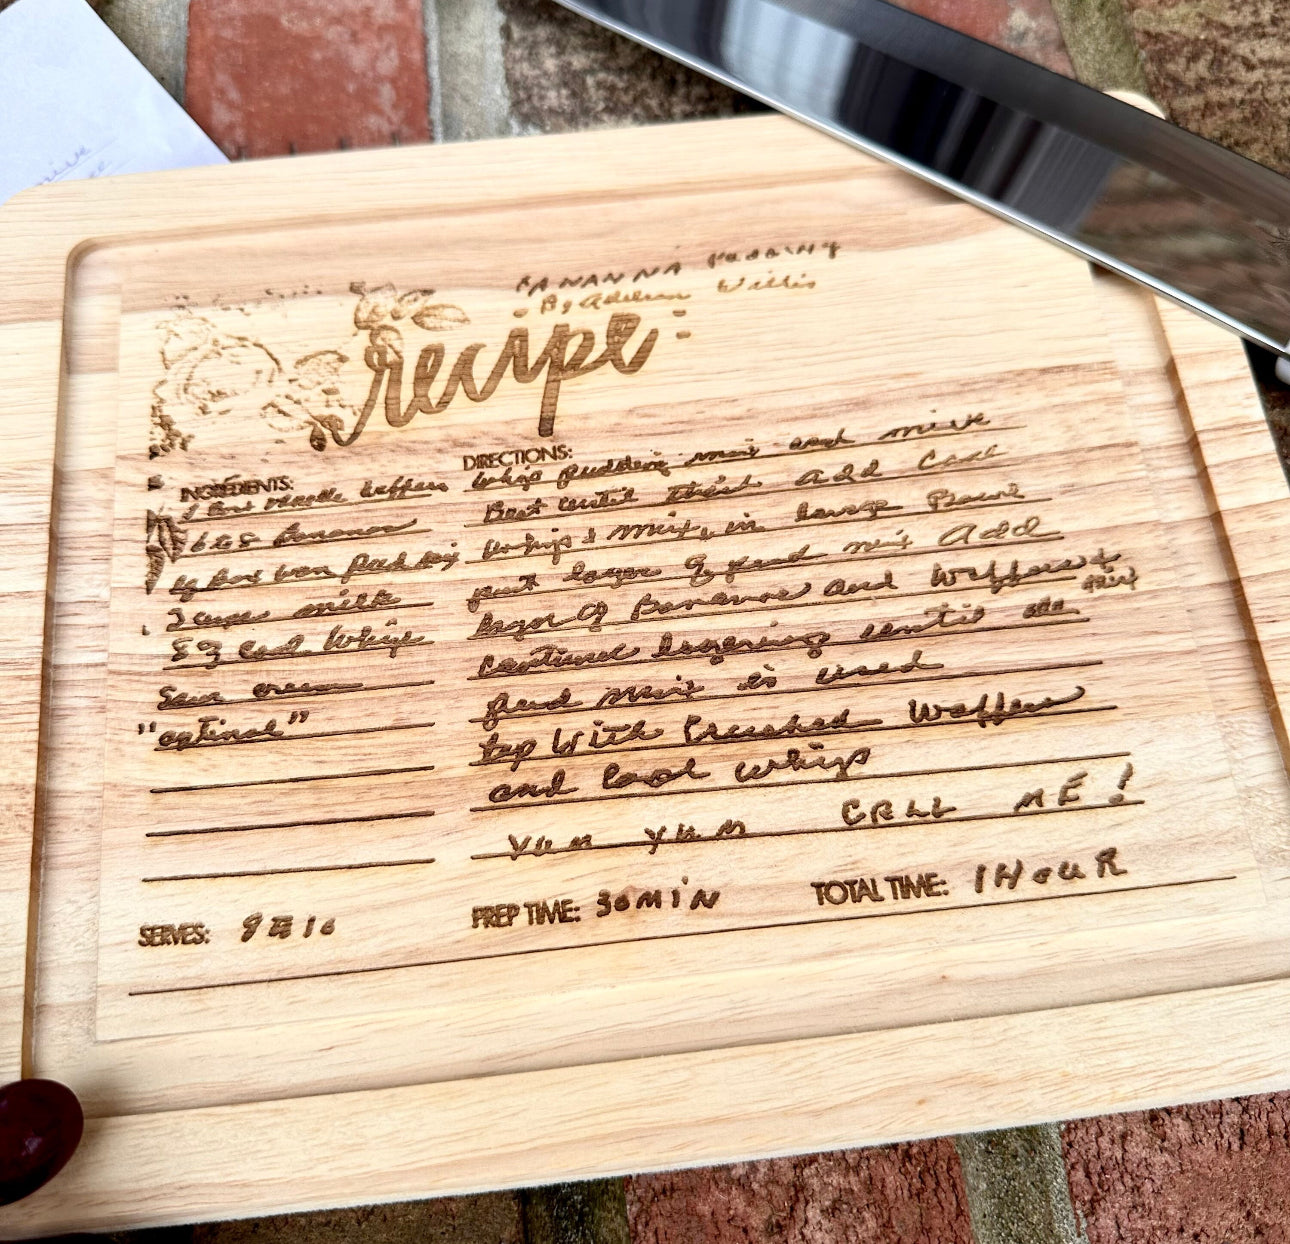 BANANNA PUDDING
By Adilien Willis
recipe
INGREDIENTS:
1 Box waffers
6 to 8 bananas
box Van Pud Mix
3 cups milk
8 oz cool whip
Sour cream
"optinal"
DIRECTIONS:
Whip pudding mix and milk
Beat until thick Add Cool
Whip & mix, in large Bowl
put layer of pud mix Add
layer of Bananas and Waffers
Continue layering until all
pud mix is used
top With Crushed Waffers
and Cool whip
YUM YUM CALL ME!
SERVES: 8 to 10
PREP TIME: 30 MIN
TOTAL TIME: 1 HOUR